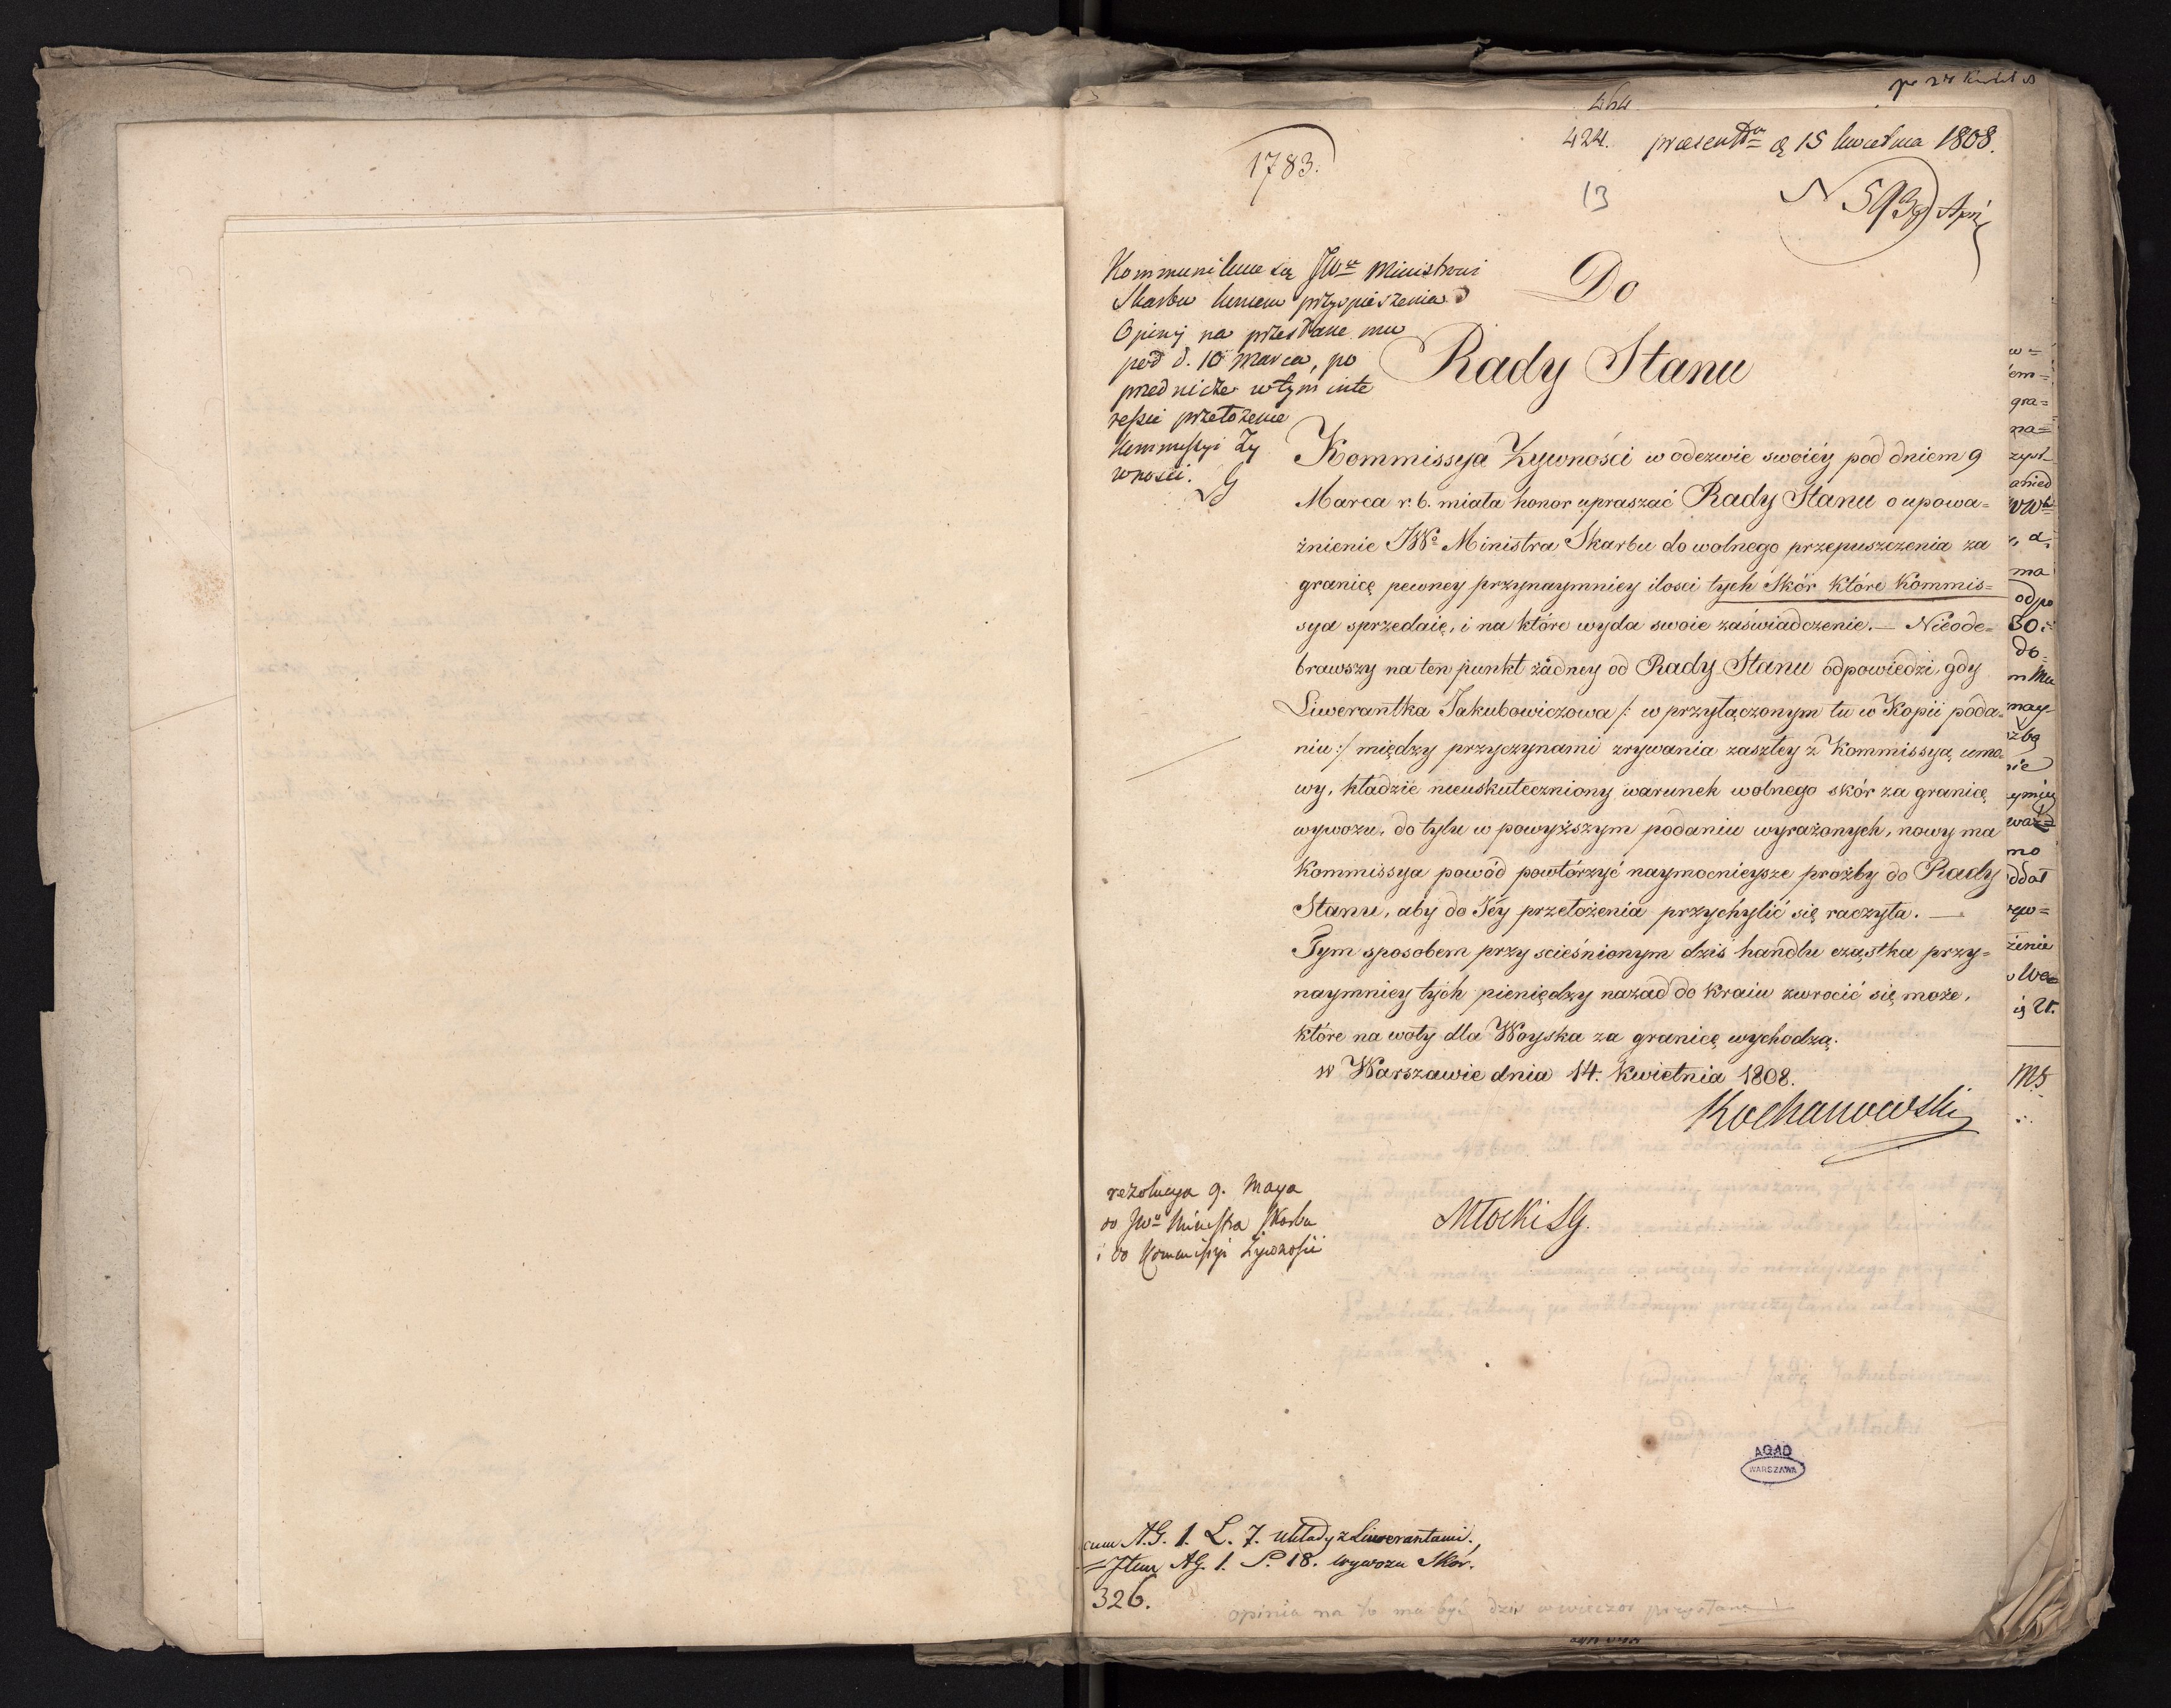 464
424. praesentm d 15 kwietnia 1808.
1783.
13
N 593
Do
Rady Stanu
Kommunikuie się JWu Ministrowi
Skarbu końcem przyspieszenia
Opinij na przesłane mu
pod d. 10 Marca, po
przednicze w tym inte
ressie przełożenie
Kommissyi Ży
wności.
Kommissya Żywności w odezwie swoiéy pod dniem 9
Marca r. b. miała honor upraszać Rady Stanu o upowa=
żnienie JWo Ministra Skarbu do wolnego przepuszczenia za
granicę pewney przynaymniey ilosci tych Skór które Kommis=
sya sprzedaie, i na które wyda swoie zaświadczenie.— Nieode=
brawszy na ten punkt żadney od Rady Stanu odpowiedzi, gdy
Liwerantka Jakubowiczowa /: w przyłączonym tu w Kopii poda=
niu :/ między przyczynami zrywania zaszłey z Kommissyą umo=
wy, kładzie nieuskuteczniony warunek wolnego skór za granicę
wywozu, do tylu w powyższym podaniu wyrażonych, nowy ma
Kommissya powód powtórzyć naymocnieysze prożby do Rady
Stanu, aby do Jéy przełożenia przychylić się raczyła. —
Tym sposobem przy scieśnionym dziś handlu cząstka przy=
naymniey tych pieniędzy nazad do Kraiu zwrocić się może,
które na woły dla Woyska za granicę wychodzą.
w Warszawie dnia 14. Kwietnia 1808.
Kochanowski
Młocki SG.
rezolucya 9. Maya
do JWo Ministra Skarbu
i do Kommissyi Żywności
AGAD
WARSZAWA
cum A.G. 1. L. 7. układy z Liwerantami.
Item AG. 1. S. 18. wywozu Skór.
326.
opinia na to ma być dziś w wieczor przysłana